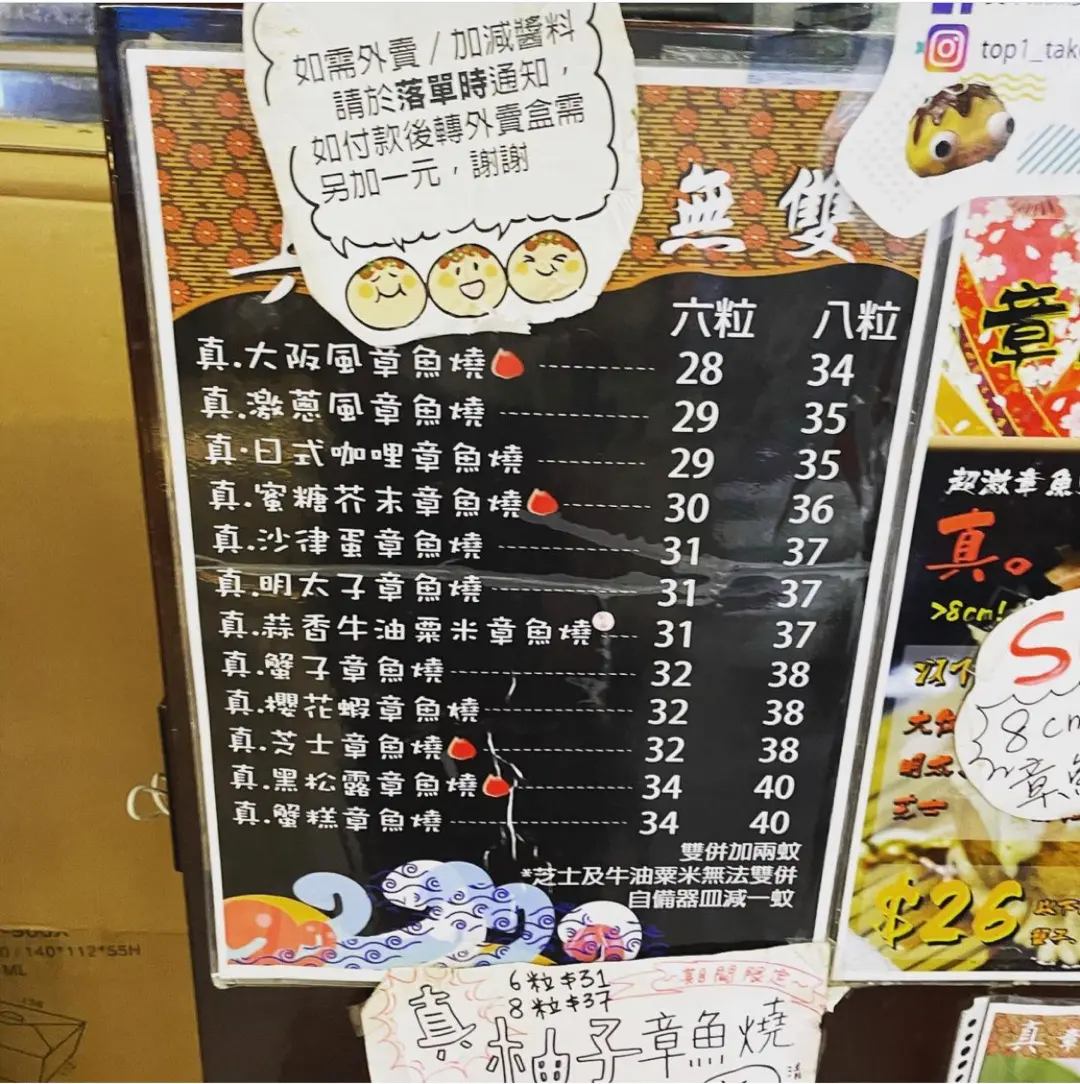 如需外賣/加減醬料
請於落單時通知，
如付款後轉外賣盒需
另加一元，謝謝
top1_tak
無雙
六粒 八粒
真.大阪風章魚燒 28 34
真.激蔥風章魚燒 29 35
真.日式咖哩章魚燒 29 35
真.蜜糖芥末章魚燒 30 36
真.沙律蛋章魚燒 31 37
真.明太子章魚燒 31 37
真.蒜香牛油粟米章魚燒 31 37
真.蟹子章魚燒 32 38
真.櫻花蝦章魚燒 32 38
真.芝士章魚燒 32 38
真.黑松露章魚燒 34 40
真.蟹糕章魚燒 34 40
雙併加兩蚊
*芝士及牛油粟米無法雙併
自備器皿減一蚊
期間限定
6粒$31
8粒$37
真柚子章魚燒
章
超激章魚
真。
>8cm!
8cm
章魚
$26
真章
/140*112*55H
ML